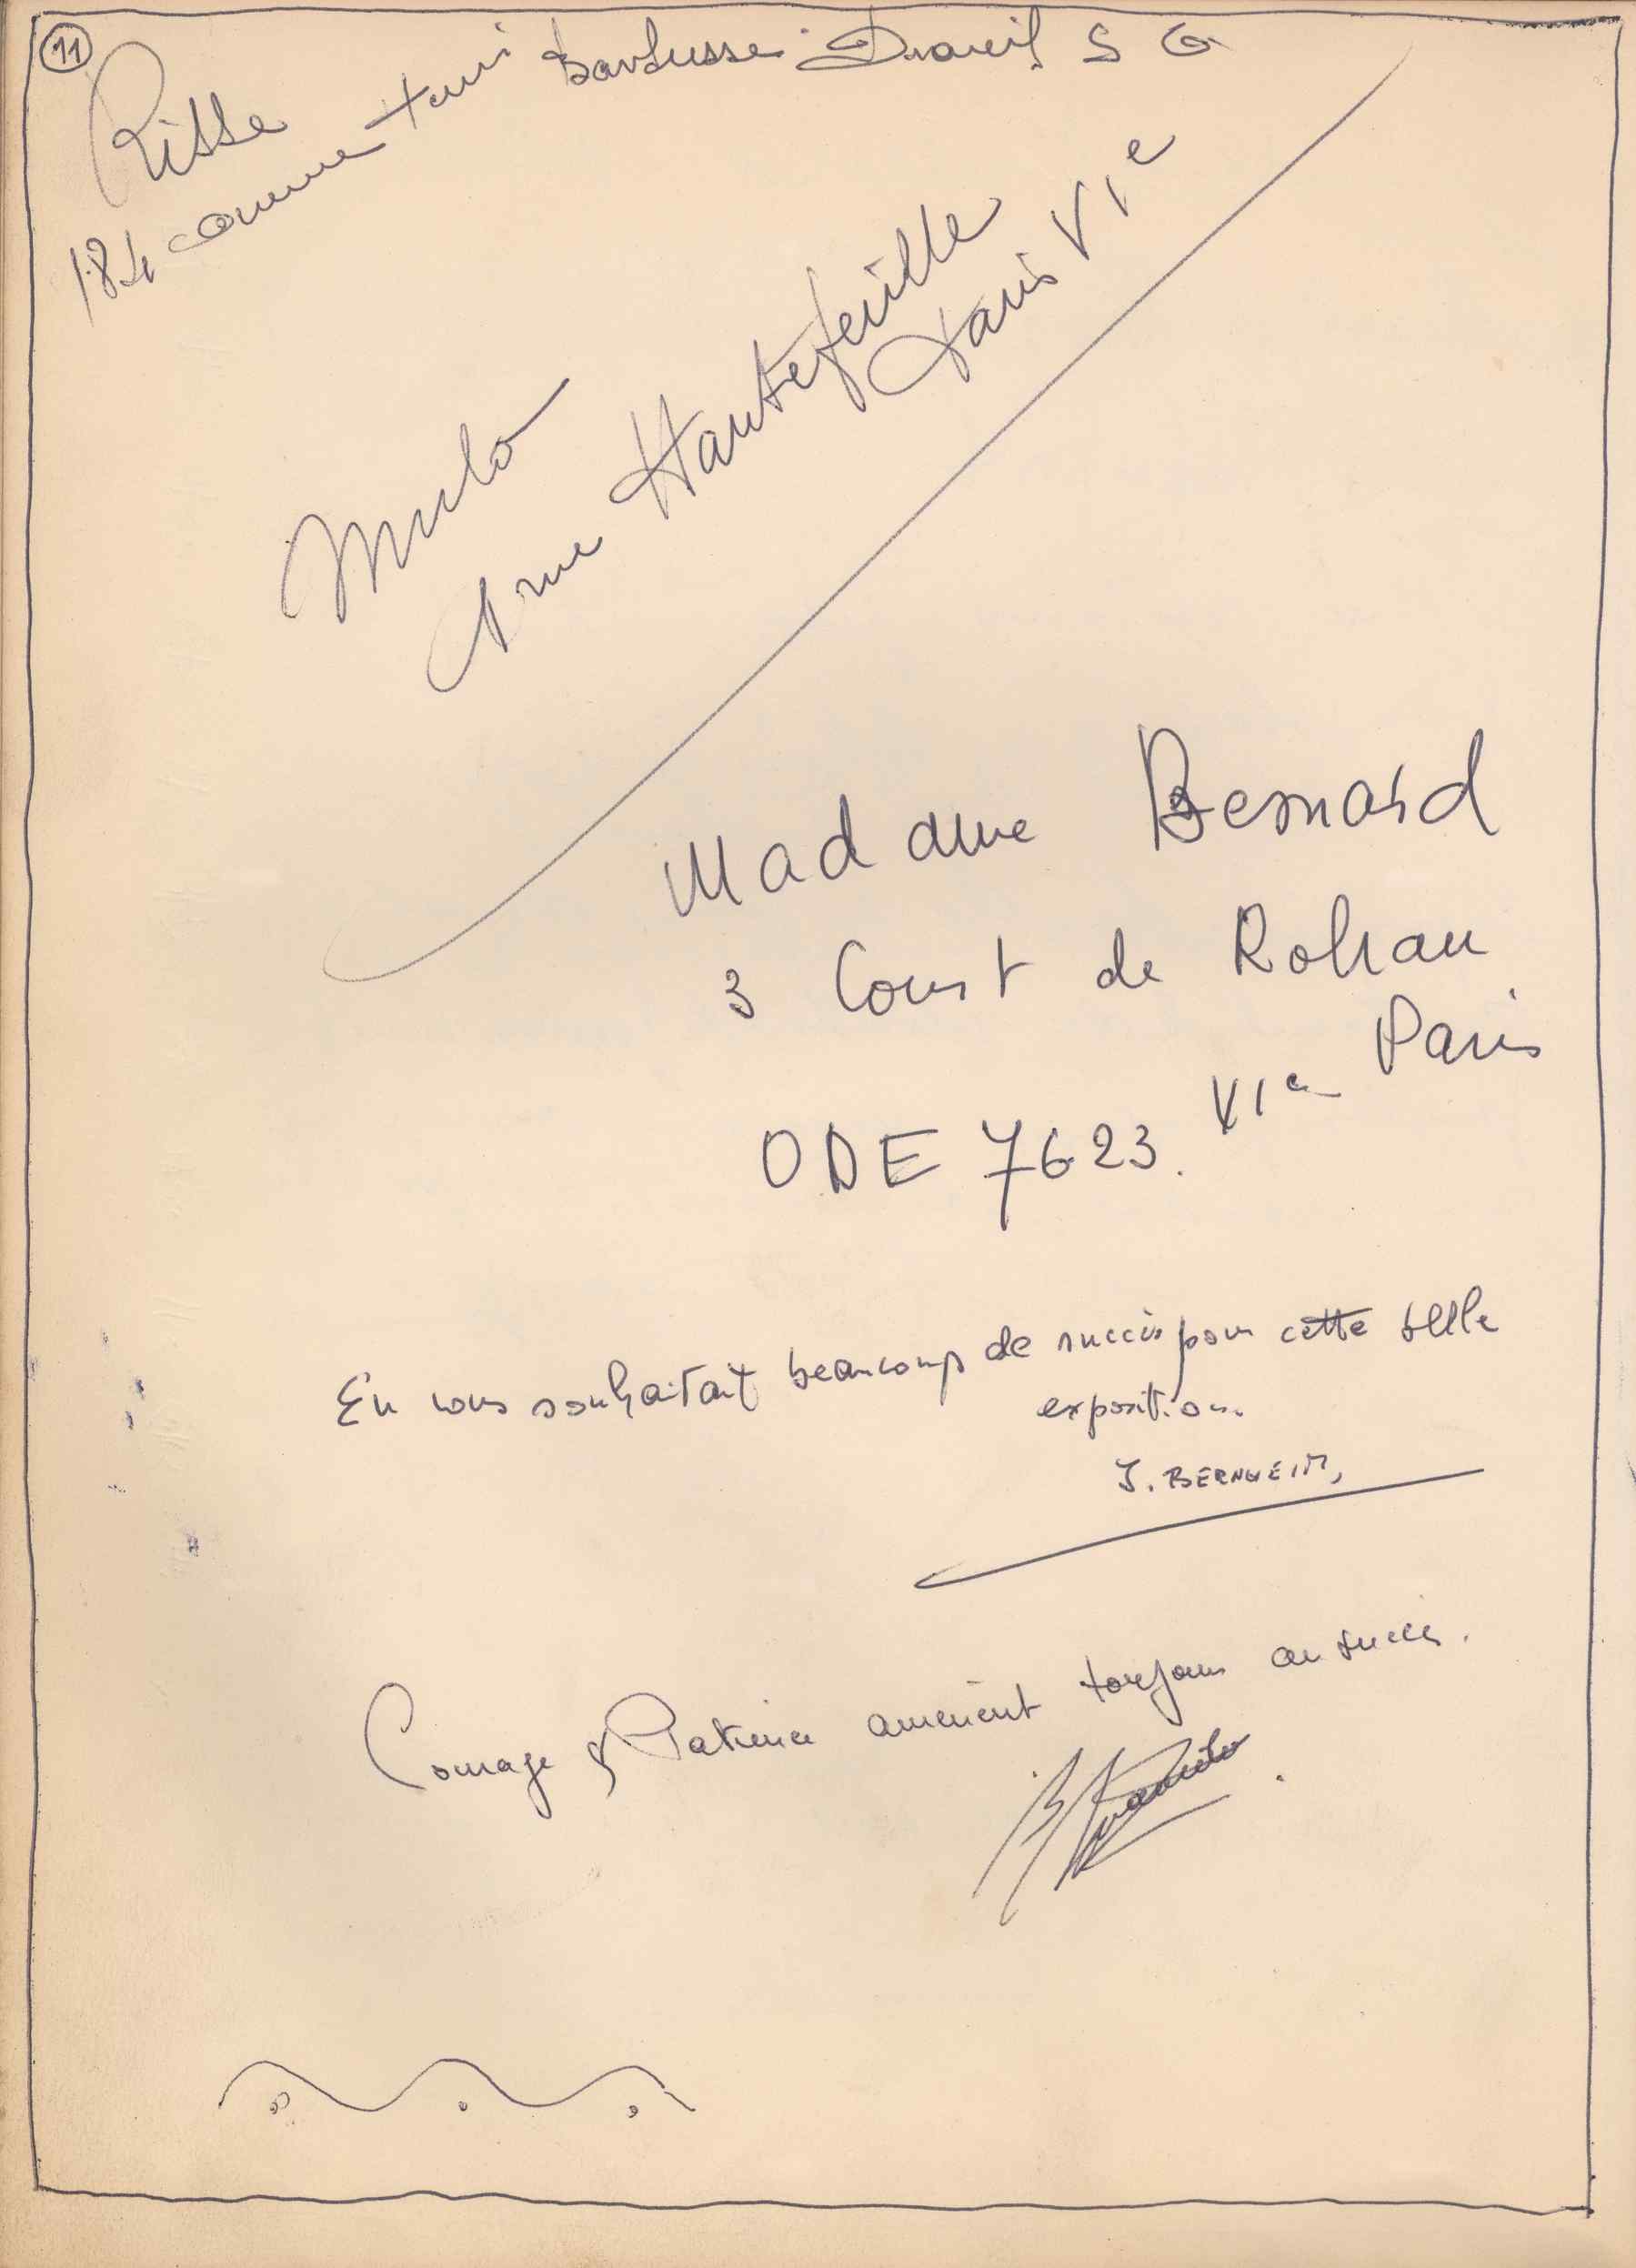 11
Risse
184 avenue Henri Barbusse Draveil S O
Mulo
1 rue Hautefeuille
Paris VIe
Madame Bernard
3 Court de Rohan
VIe Paris
ODE 7623.
En vous souhaitant beaucoup de succès pour cette belle
exposition.
J. BERNHEIM,
Courage & Patience amènent toujours au succès.